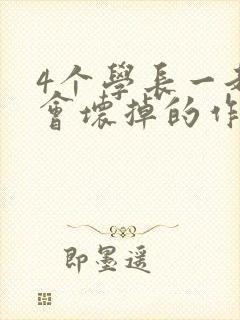 4个學長一起
會壞掉的作
即墨遥